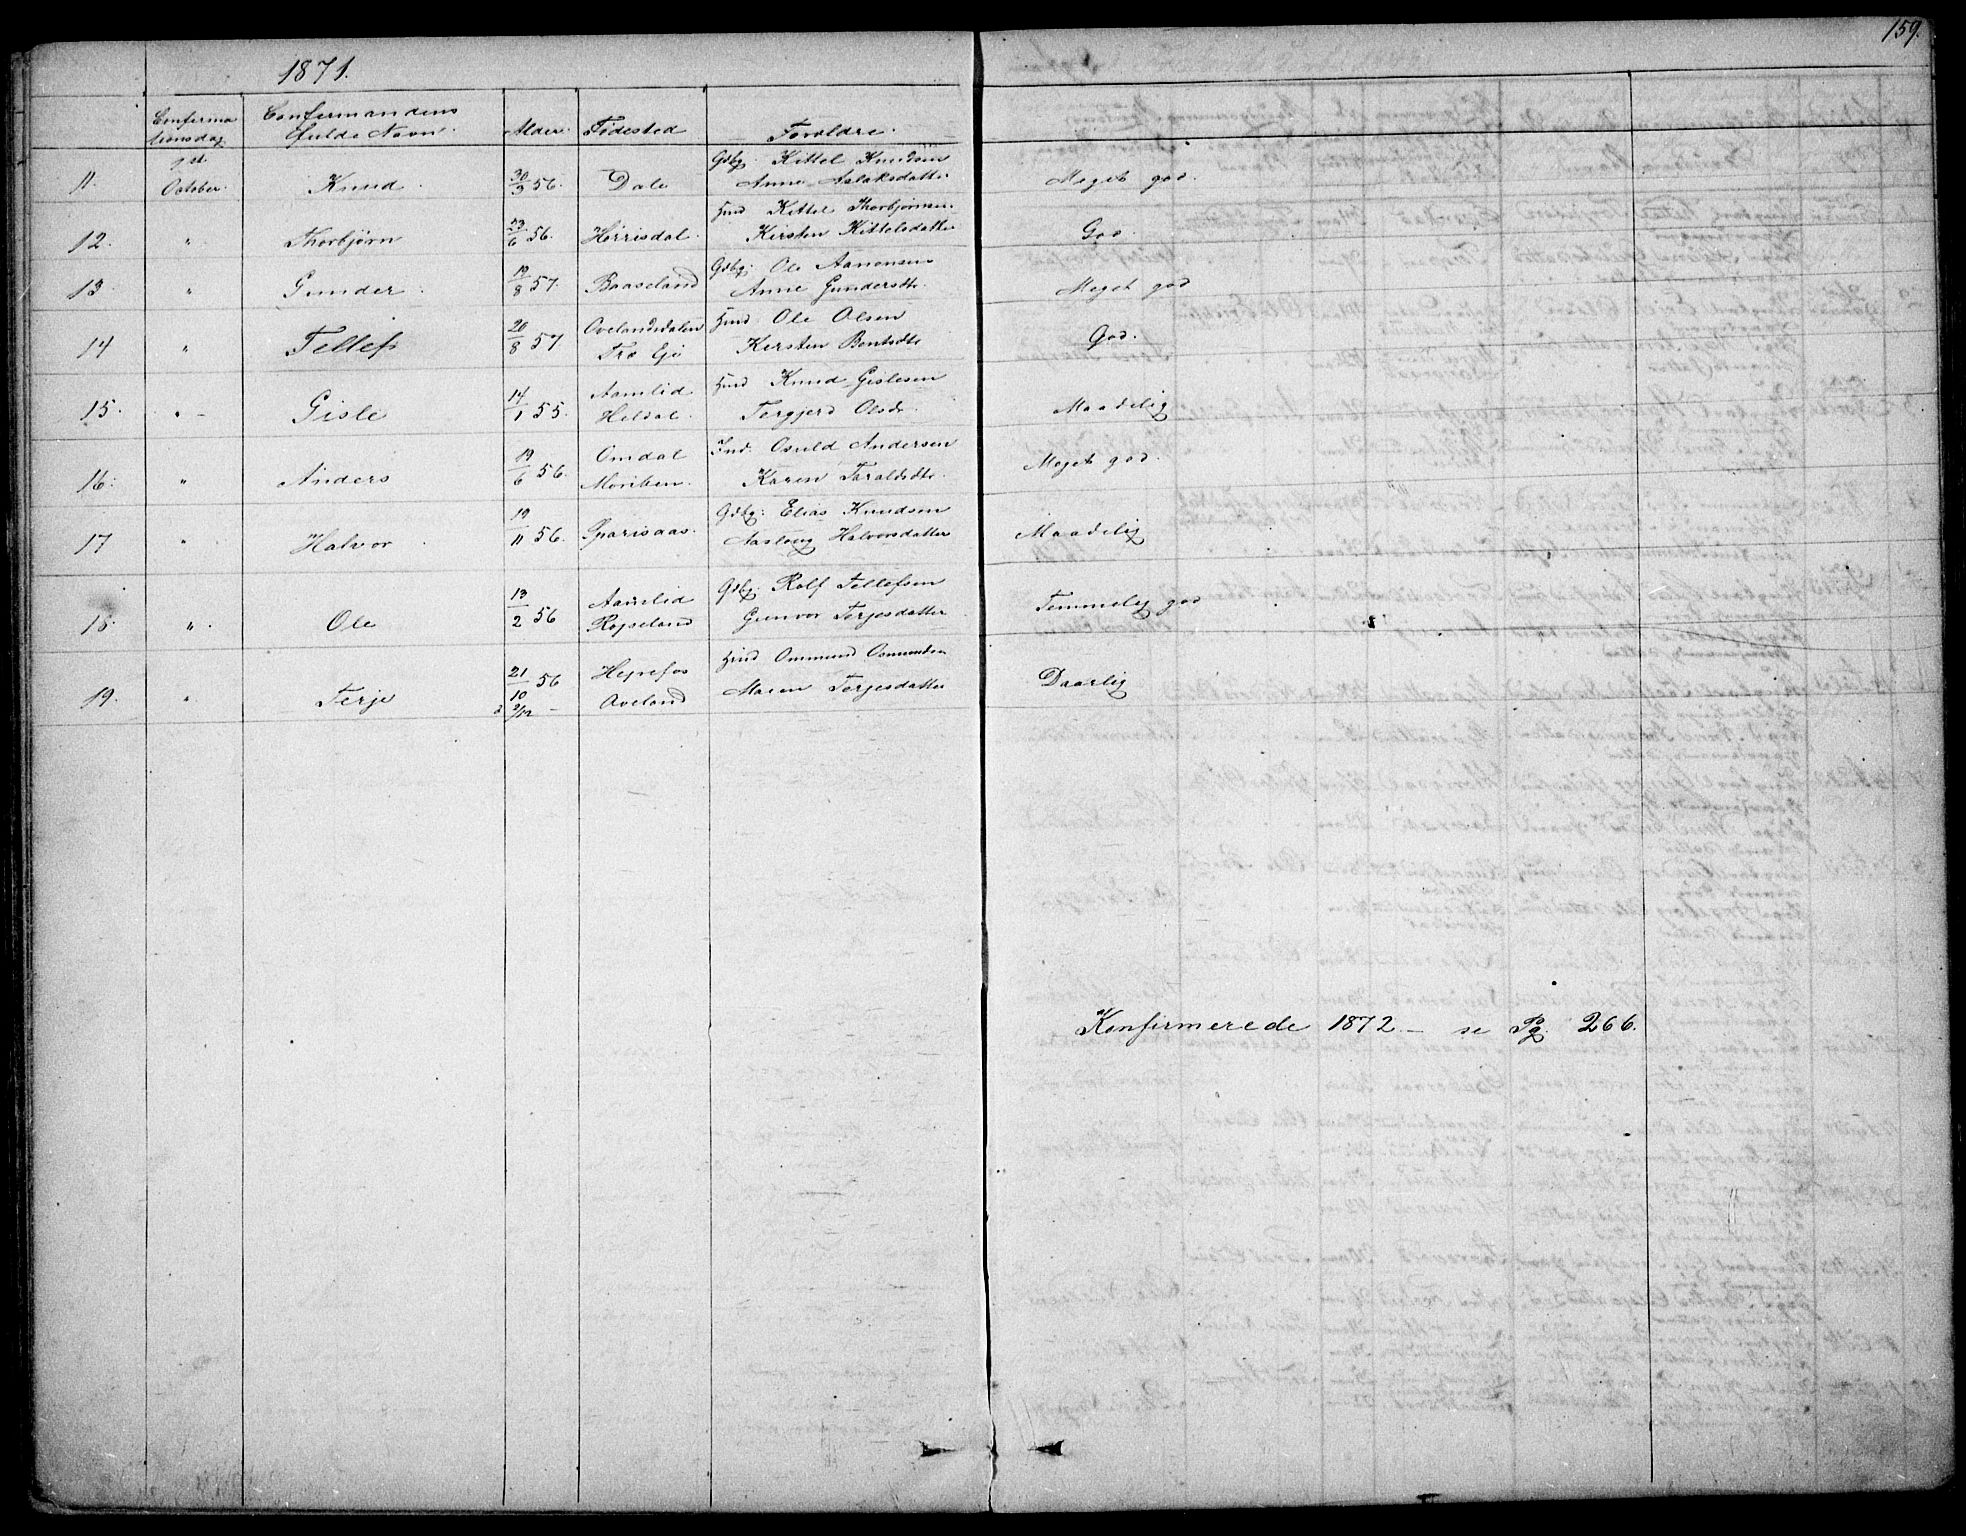 159.
1871.
Conferma
tionsdag
Confermandens
fulde Navn.
Alder.
Födested
Foraldre.
11.
October.
Knud.
30/3 56.
Dale
Gdbg. Kittel Knudsen
Anne Aslaksdatter
Meget god.
12.
"
Thorbjørn
/6 56.
Hørrisdal.
Hmd Kittel Thorbjørnsen.
Kirsten Kittelsdatter
God.
13
"
Gunder.
19/8 57.
Baaseland
Gdbg: Ole Aanonsen
Anne Gundersdtr.
Meget god
14
"
Tellef
20/8 57
Ovelandsdalen
Tro Eje
Hmd. Ole Olsen
Kirsten Bentsdtr
God.
15.
" -
Gisle
14/1 55.
Aamlid
Heldal.
Hmd Knud Gislesen
Tergjerd Olsdr.
Maadelig
16.
"
Anders
19/6 56.
Omdal
Moriben.
Ind. Osuld Andersen
Karen Taraldsdtr.
Meget god.
17
"
Halvor.
19/11 56.
Sparisaas.
Gdbg: Elias Knudsen
Aasloug Halvorsdatter
Maadelig
18.
".
Ole
13/2 56
Aamlid
Rajseland
Gdbg. Rolf Tellefsen
Gunvor Terjesdatter
Temmelig god
19.
"
Terje
21/10 56
2/12 -
Hejrefos
Oveland
Hmd Ommund Osmundsen
Maren Terjesdatter
Daarlig
Konfirmerede 1872 - se Pg. 266.